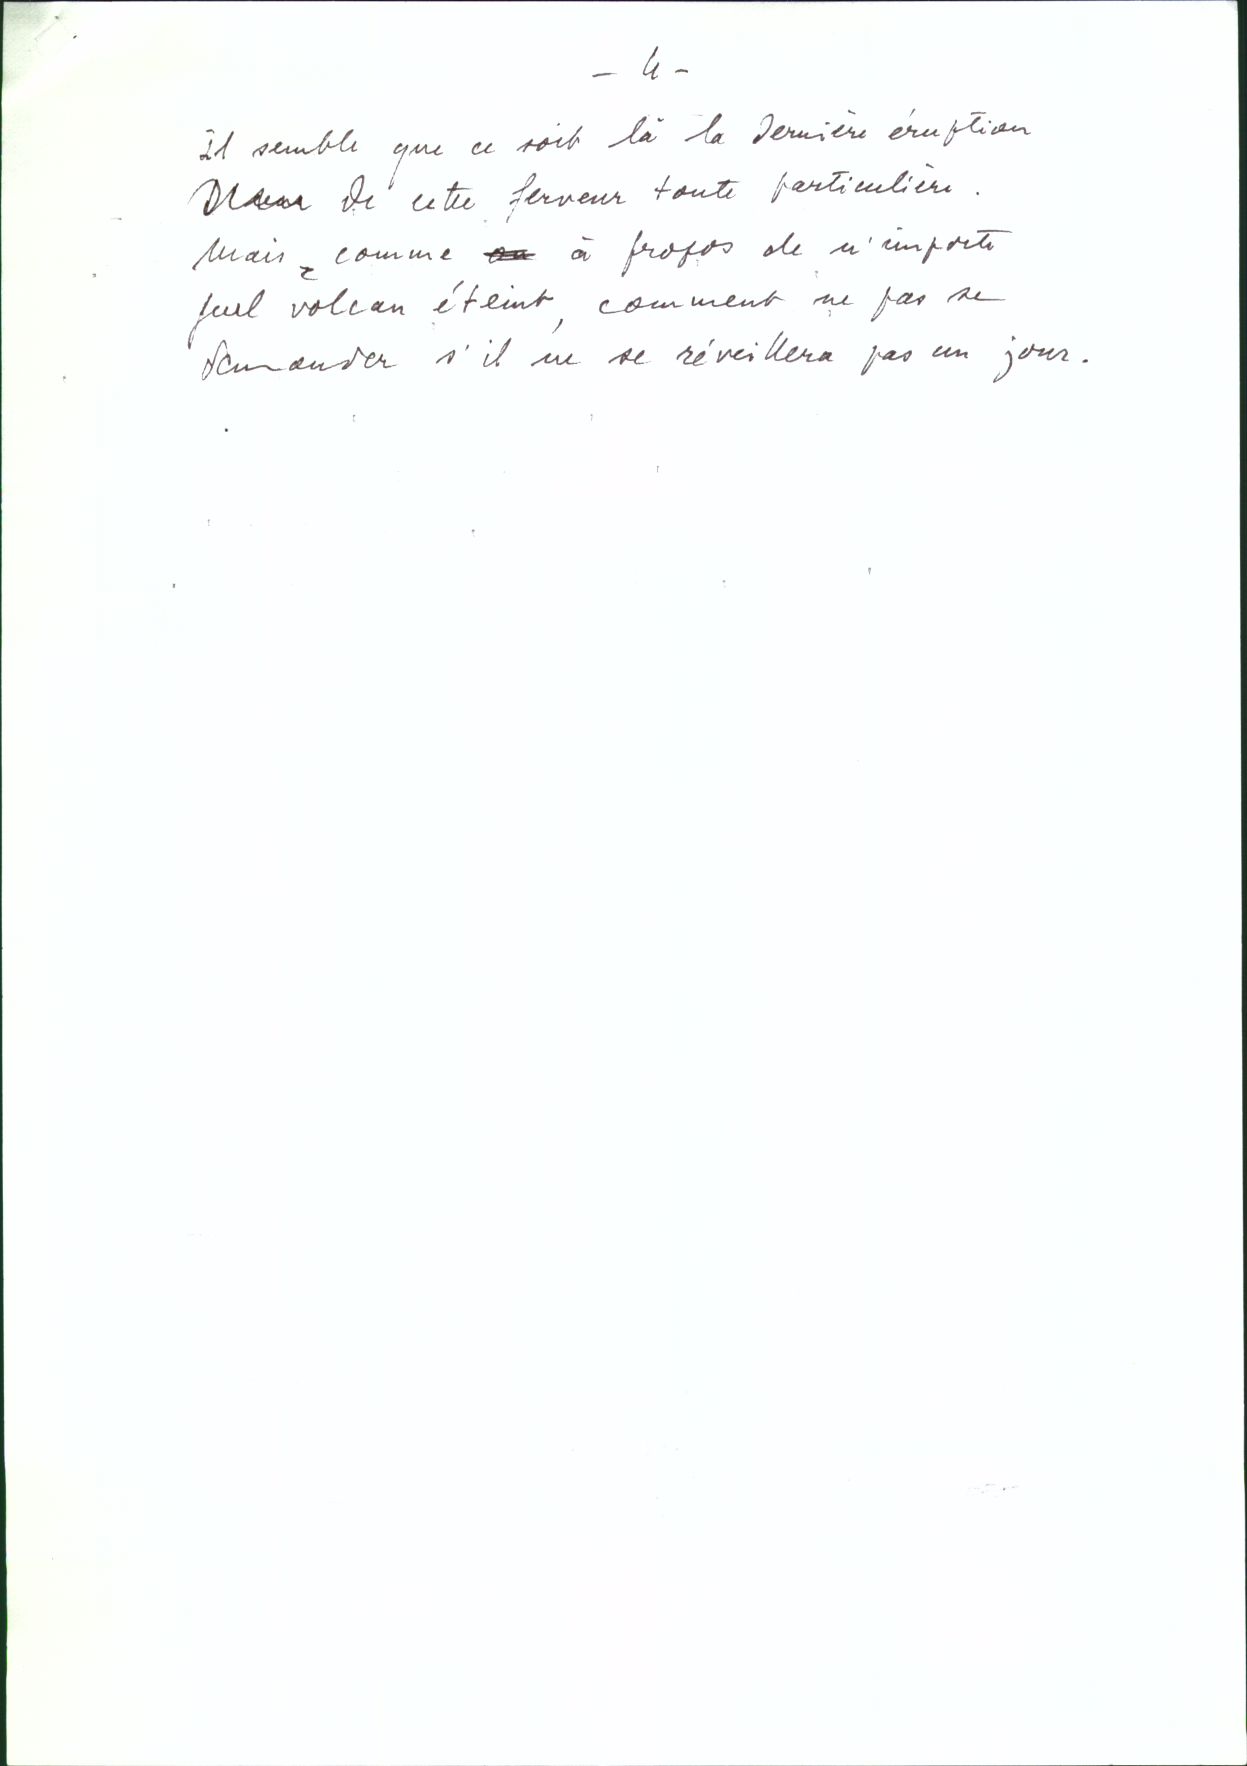 - 4 -
Il semble que ce soit là la dernière éruption
de cette ferveur toute particulière.
Mais, comme à propos de n'importe
quel volcan éteint, comment ne pas se
demander s'il ne se réveillera pas un jour.